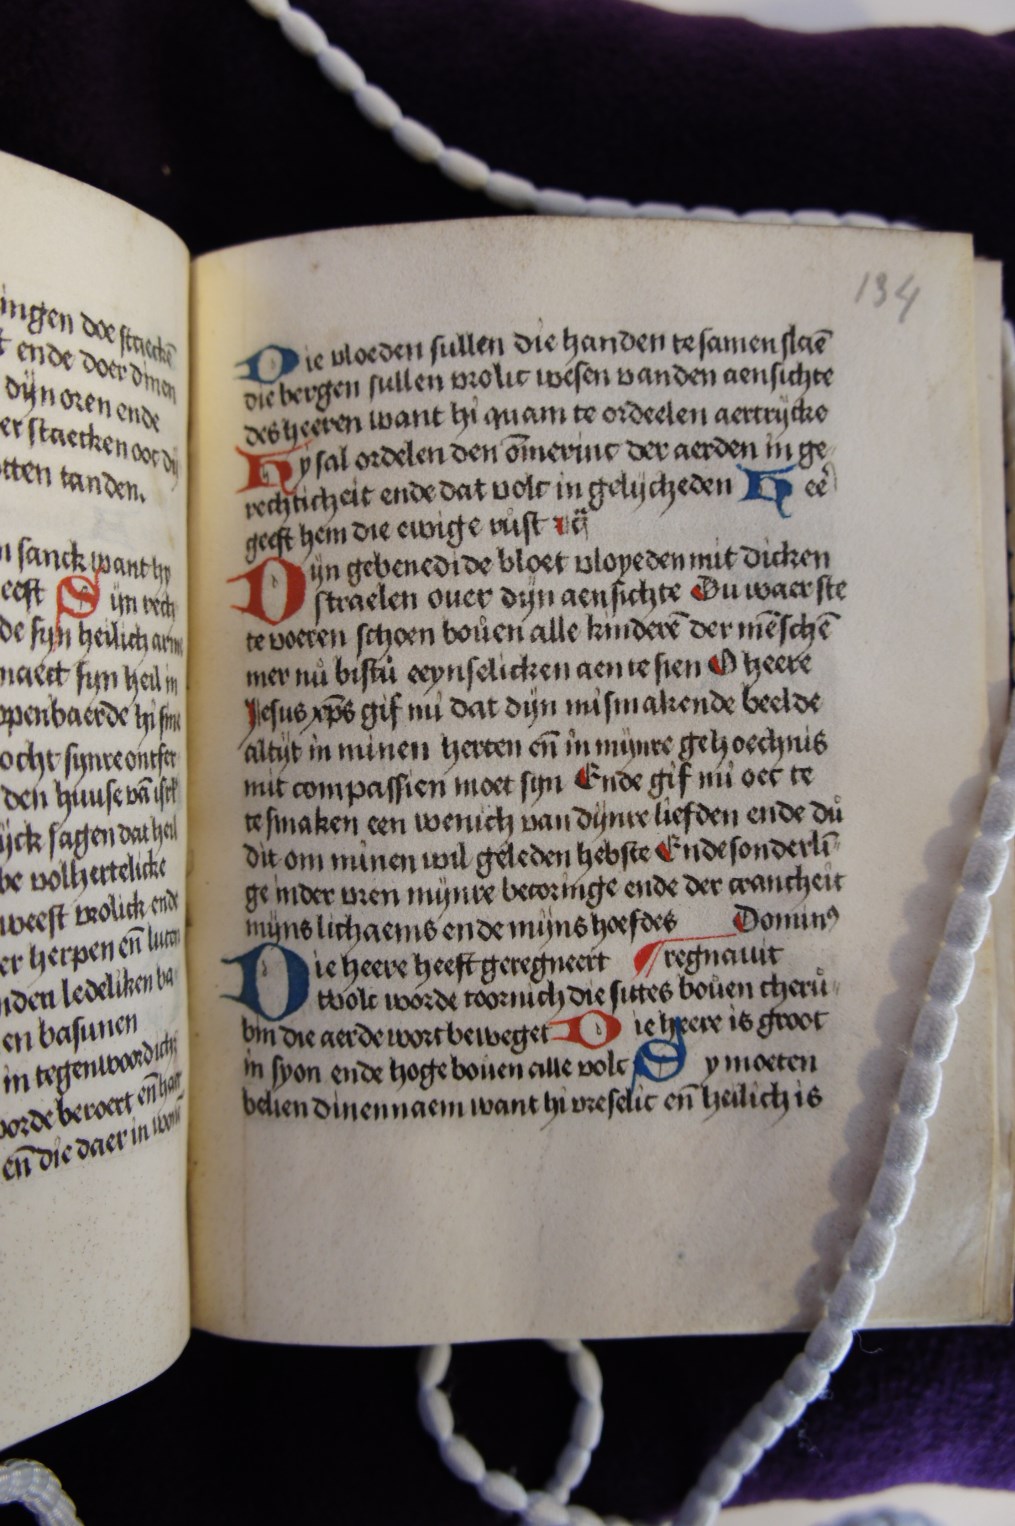 ingen doe staeckē
ende doer dinen
dÿn oren ende
er staecken ooc dÿ
tten tanden.
sanck want hy
eest Sÿn rech
de syn heilich arm
maect syn heil in
openbaerde hi sine
ocht synre ontfer
den huuse vā isrl
ÿck sagen dat heil
be volhertelicke
weest vrolick ende
er herpen eñ
nden ledeliken ba
en basunen
in tegenwoordich
oorde beroert eñ
eñ die daer in
134
Die vloeden sullen die handen te samen slaē
die bergen sullen vrolic wesen van den aensichte
des heeren want hi quam te ordeelen aertrÿcke
Hy sal ordelen den ōmerinc der aerden in ge
rechticheit ende dat volc in gelÿcheden Hee
geeft hem die ewige rust
Dÿn gebenedide bloet vloyeden mit dicken
straelen ouer dÿn aensichte Du waerste
te voeren schoen bouen alle kinderē der mēschē
mer nu bistu eeynselicken aen te sien O heere
Jesus xp̄s gif mi dat dÿn mismakende beelde
altÿt in minen herten eñ in mÿnre gehoechnis
mit compassien moet syn Ende gif mi oec te
te smaken een wenich van dÿnre liefden ende du
dit om minen wil geleden hebste Ende sonderli
ge inder vren mÿnre becoringe ende der crancheit
mÿns lichaems ende mÿns hoefdes Dominꝰ
Die heere heeft geregneert regnauit
tvolc worde toornich die sittes bouen cheru
bin die aerde wort beweget Die heere is groot
in syon ende hoge bouen alle volc Sy moeten
belien dinen naem want hi vreselic eñ heilich is